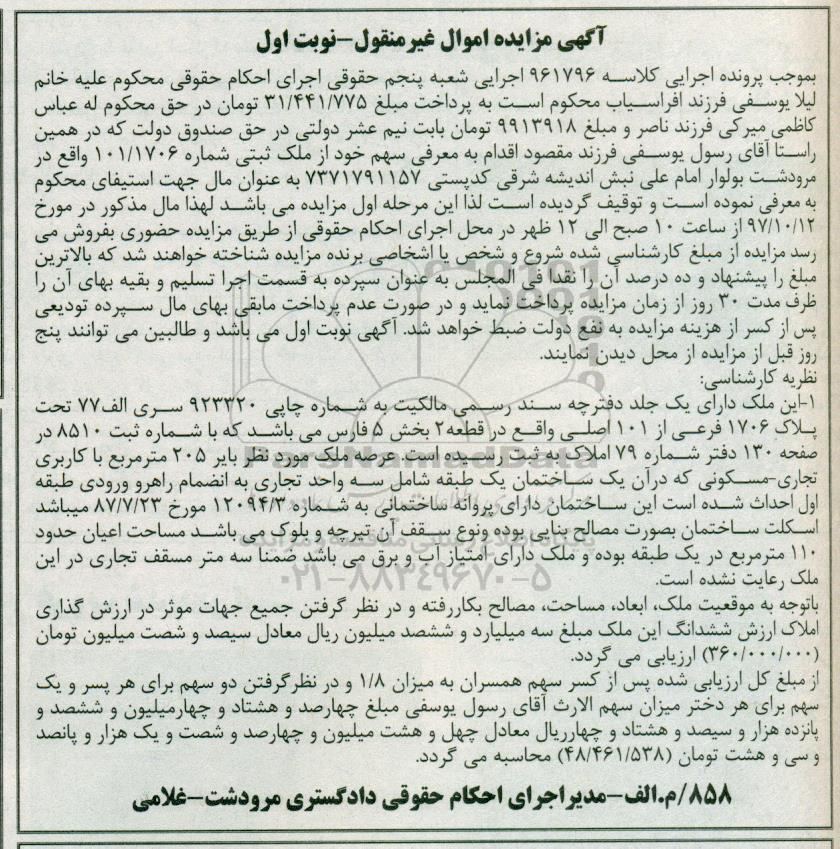 آگهی مزایده اموال غیرمنقول-نوبت اول
بموجب پرونده اجرایی کلاسه ۹۶۱۷۹۶ اجرایی شعبه پنجم حقوقی اجرای احکام حقوقی محکوم علیه خانم
لیلا یوسفی فرزند افراسیاب محکوم است به پرداخت مبلغ ۳۱/۴۴۱/۷۷۵ تومان در حق محکوم له عباس
کاظمی میرکی فرزند ناصر و مبلغ ۹۹۱۳۹۱۸ تومان بابت نیم عشر دولتی در حق صندوق دولت که در همین
راستا آقای رسول یوسفی فرزند مقصود اقدام به معرفی سهم خود از ملک ثبتی شماره ۱۰۱/۱۷۰۶ واقع در
مرودشت بولوار امام علی نبش اندیشه شرقی کدپستی ۷۳۷۱۷۹۱۱۵۷ به عنوان مال جهت استیفای محکوم
به معرفی نموده است و توقیف گردیده است لذا این مرحله اول مزایده می باشد لهذا مال مذکور در مورخ
۹۷/۱۰/۱۲ از ساعت ۱۰ صبح الی ۱۲ ظهر در محل اجرای احکام حقوقی از طریق مزایده حضوری بفروش می
رسد مزایده از مبلغ کارشناسی شده شروع و شخص یا اشخاصی برنده مزایده شناخته خواهند شد که بالاترین
مبلغ را پیشنهاد و ده درصد آن را نقدا فی المجلس به عنوان سپرده به قسمت اجرا تسلیم و بقیه بهای آن را
ظرف مدت ۳۰ روز از زمان مزایده پرداخت نماید و در صورت عدم پرداخت مابقی بهای مال سپرده تودیعی
پس از کسر از هزینه مزایده به نفع دولت ضبط خواهد شد. آگهی نوبت اول می باشد و طالبین می توانند پنج
روز قبل از مزایده از محل دیدن نمایند.
نظریه کارشناسی:
۱-این ملک دارای یک جلد دفترچه سند رسمی مالکیت به شماره چاپی ۹۲۳۳۲۰ سری الف۷۷ تحت
پلاک ۱۷۰۶ فرعی از ۱۰۱ اصلی واقع در قطعه۲ بخش ۵ فارس می باشد که با شماره ثبت ۸۵۱۰ در
صفحه ۱۳۰ دفتر شماره ۷۹ املاک به ثبت رسیده است. عرصه ملک مورد نظر بایر ۲۰۵ مترمربع با کاربری
تجاری-مسکونی که درآن یک ساختمان یک طبقه شامل سه واحد تجاری به انضمام راهرو ورودی طبقه
اول احداث شده است این ساختمان دارای پروانه ساختمانی به شماره ۱۲۰۹۴/۳ مورخ ۸۷/۷/۲۳ میباشد
اسکلت ساختمان بصورت مصالح بنایی بوده ونوع سقف آن تیرچه و بلوک می باشد مساحت اعیان حدود
۱۱۰ مترمربع در یک طبقه بوده و ملک دارای امتیاز آب و برق می باشد ضمنا سه متر مسقف تجاری در این
ملک رعایت نشده است.
باتوجه به موقعیت ملک، ابعاد، مساحت، مصالح بکاررفته و در نظر گرفتن جمیع جهات موثر در ارزش گذاری
املاک ارزش ششدانگ این ملک مبلغ سه میلیارد و ششصد میلیون ریال معادل سیصد و شصت میلیون تومان
(۳۶۰/۰۰۰/۰۰۰) ارزیابی می گردد.
از مبلغ کل ارزیابی شده پس از کسر سهم همسران به میزان ۱/۸ و در نظرگرفتن دو سهم برای هر پسر و یک
سهم برای هر دختر میزان سهم الارث آقای رسول یوسفی مبلغ چهارصد و هشتاد و چهارمیلیون و ششصد و
پانزده هزار و سیصد و هشتاد و چهارریال معادل چهل و هشت میلیون و چهارصد و شصت و یک هزار و پانصد
و سی و هشت تومان (۴۸/۴۶۱/۵۳۸) محاسبه می گردد.
۸۵۸/م.الف-مدیراجرای احکام حقوقی دادگستری مرودشت-غلامی
ParsNamadData
۰۲۱-۸۸۳۴۹۶۷۰-۵